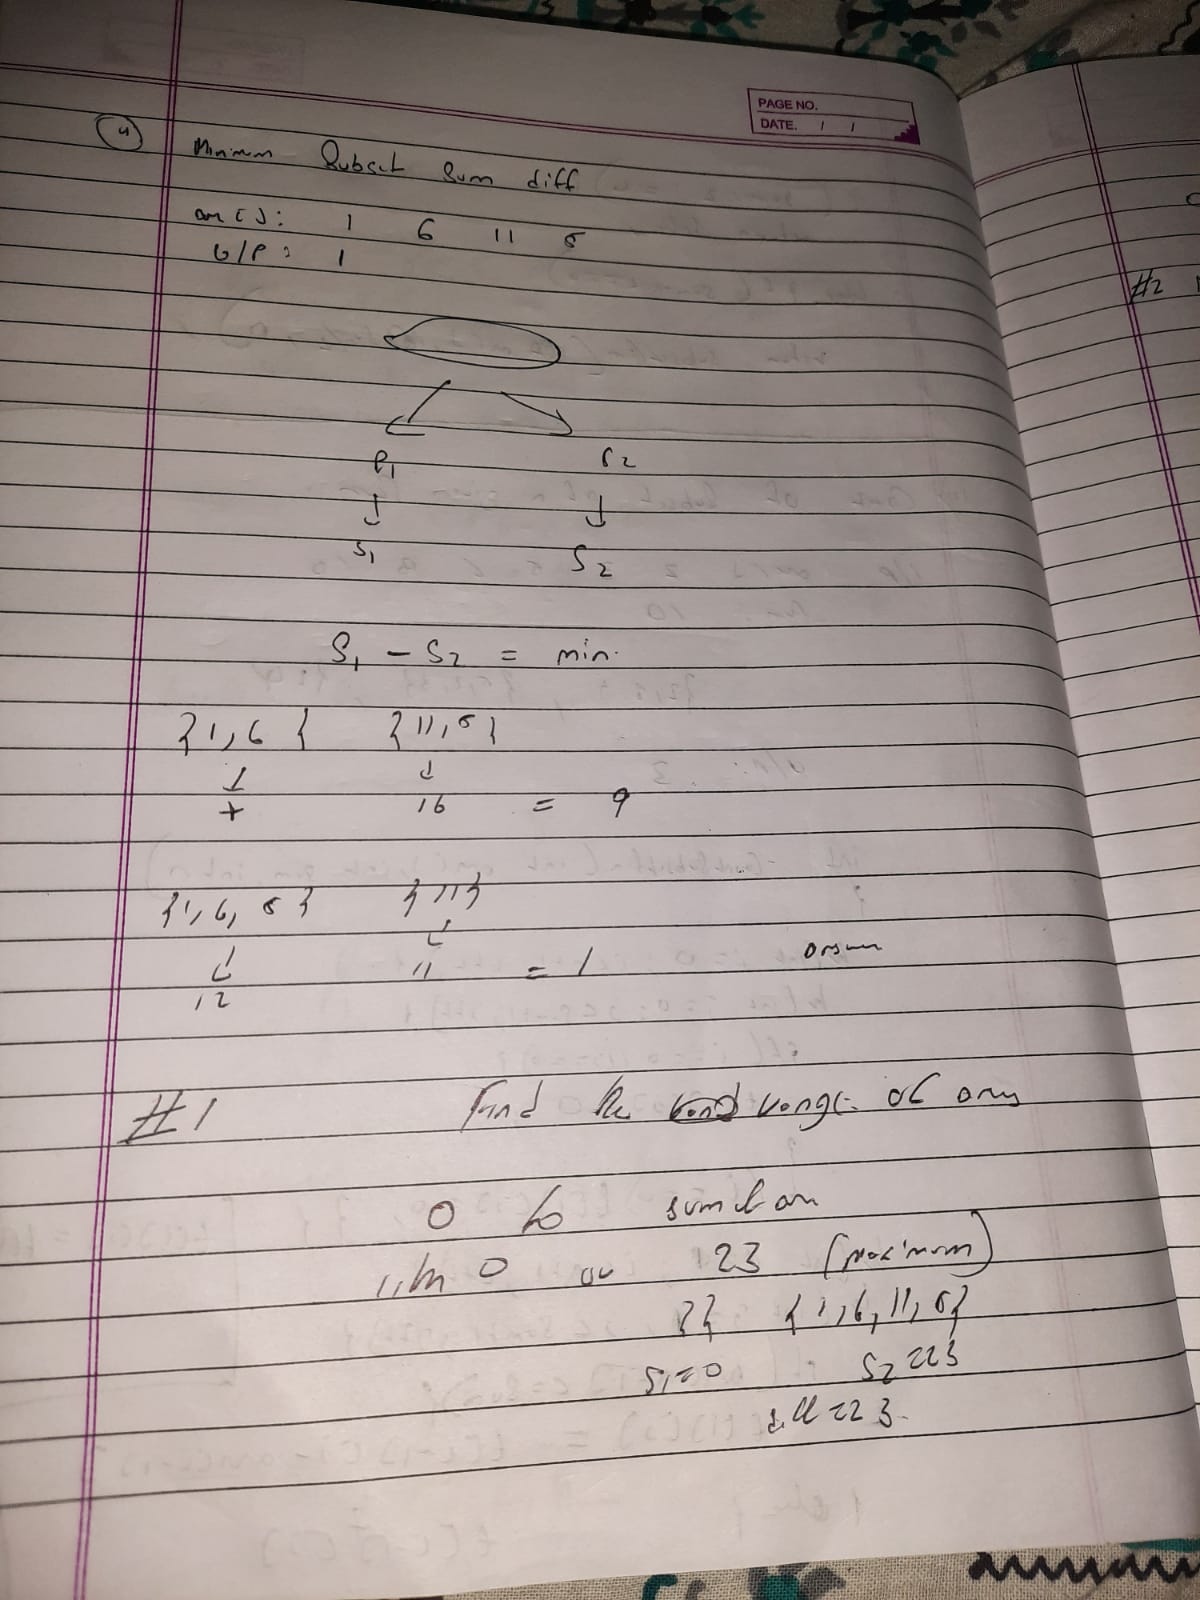 PAGE NO.
DATE. / /
4 Minimum Subset Sum diff
arr[]: 1 6 11 5
O/P: 1
P1 P2
S1 S2
S1 - S2 = min.
{1, 6} {11, 5}
7 16 = 9
{1, 6, 5} {11}
12 11 = 1
#1 Find the range of
0 to sum of arr
0 or 23 (maximum)
{} {1, 6, 11, 5}
S1=0 S2=23
diff=23.
#2